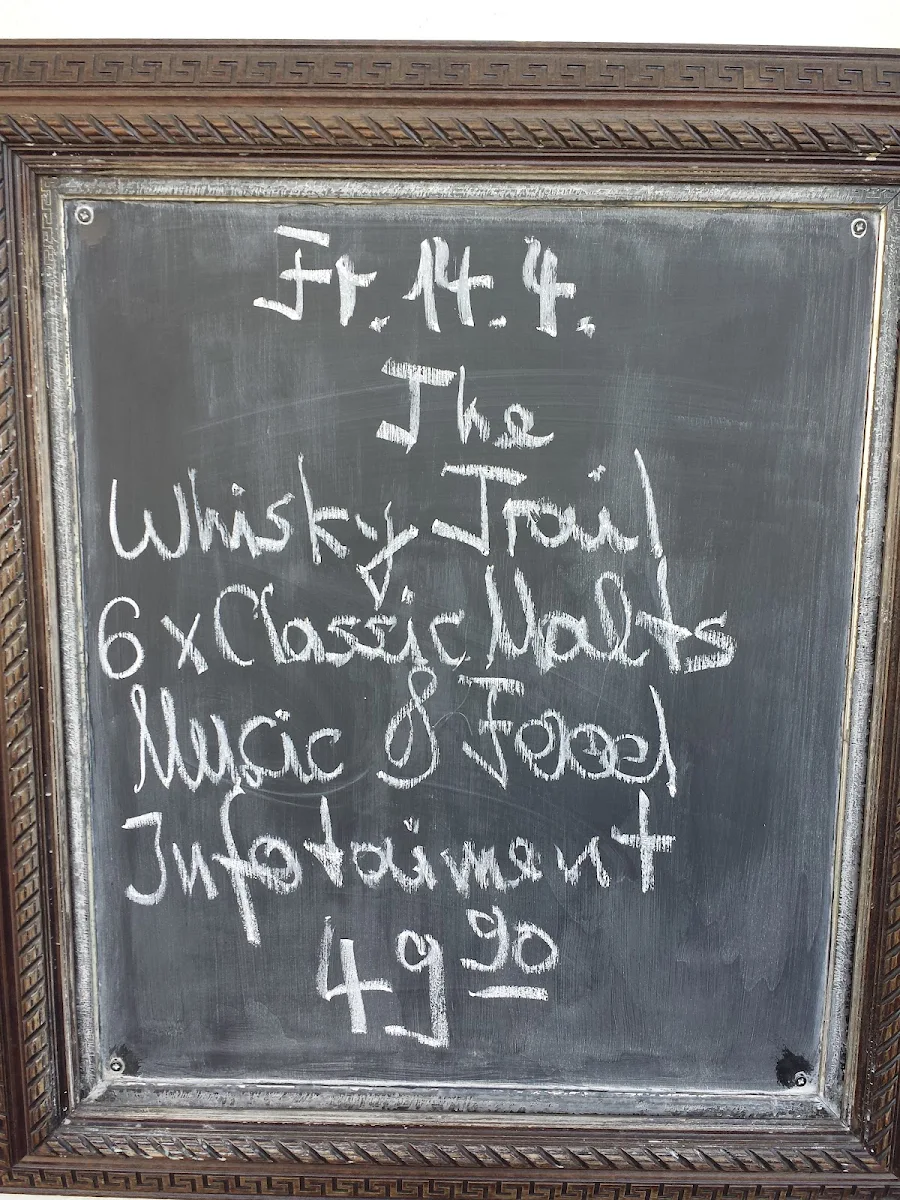 Fr. 14. 4.
The
Whisky Trail
6 x Classic Malts
Music & Food
Infotaiment
49 90